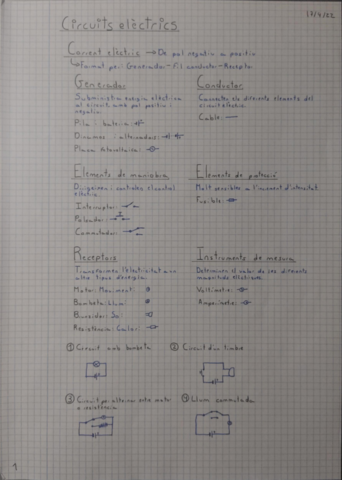 17/4/22
Circuits elèctrics
Corrent elèctric → De pol negatiu a positiu
Format per: Generador - fil conductor - Receptor
Generador
Subministra energia elèctrica
al circuit, amb pol positiu i
negatiu
Pila i bateria:
Dinamos i alternadors:
Placa fotovoltaica:
Conductor
Connecten els diferents elements del
circuit elèctric.
Cable:
Elements de maniobra
Dirigeixen i controlen el
elèctric
Interruptor:
Polsador:
Commutador:
Elements de protecció
Molt sensibles a l'augment d'intensitat.
Fusible:
Receptors
Transformen l'electricitat en
altre tipus d'energia.
Motor: Moviment:
Bombeta: Llum:
Brunzidor: So:
Resistència: Calor:
Instruments de mesura
Determinen el valor de les diferents
magnituds elèctriques.
Voltímetre:
Amperímetre:
① Circuit amb bombeta
② Circuit d'un timbre
③ Circuit per alternar entre motor
o resistència
④ Llum commutada
1